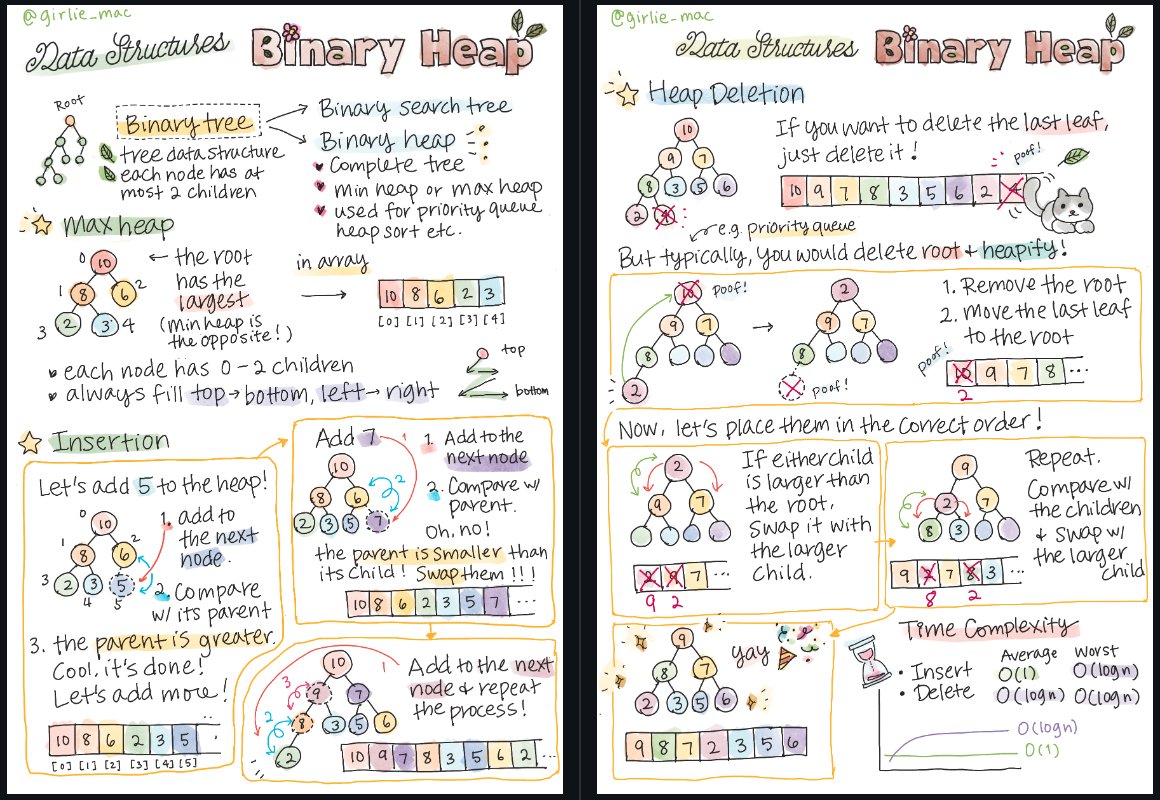 @girlie_mac
Data Structures Binary Heap
Root
Binary tree
tree data structure
each node has at
most 2 children
Binary search tree
Binary heap
Complete tree
min heap or max heap
used for priority queue
heap sort etc.
Max heap
0 10
1 8 6 2
3 2 3 4
← the root
has the
largest
(min heap is
the opposite!)
in array
→
10 8 6 2 3
[0] [1] [2] [3] [4]
each node has 0-2 children
always fill top → bottom, left → right
top
bottom
Insertion
Let's add 5 to the heap!
0 10
1 8 6 2
3 2 3 5
4 5
1. add to
the next
node.
2. Compare
w/ its parent
3. the parent is greater.
Cool, it's done!
Let's add more!
10 8 6 2 3 5 ..
[0] [1] [2] [3] [4] [5]
Add 7
10
8 6
2 3 5 7
2
1. Add to the
next node
2. Compare w/
parent.
Oh, no!
the parent is smaller than
its child! Swap them!!!
10 8 6 2 3 5 7 ...
10
9 7
8 3 5 6
2
1
3
2
Add to the next
node & repeat
the process!
10 9 7 8 3 5 6 2 ...
@girlie_mac
Data Structures Binary Heap
Heap Deletion
10
9 7
8 3 5 6
2 4
If you want to delete the last leaf,
just delete it!
poof!
10 9 7 8 3 5 6 2 4
e.g. priority queue
But typically, you would delete root & heapify!
10 poof!
9 7
8
2
→
2
9 7
8
poof!
1. Remove the root
2. move the last leaf
to the root
poof!
10 9 7 8 ...
2
Now, let's place them in the correct order!
2
9 7
If either child
is larger than
the root,
swap it with
the larger
child.
2 9 7 ...
9 2
9
2 7
8 3
Repeat.
Compare w/
the children
& swap w/
the larger
child
9 2 7 8 3 ...
8 2
9
8 7
2 3 5 6
yay
9 8 7 2 3 5 6
Time Complexity
Average Worst
• Insert O(1) O(log n)
• Delete O(log n) O(log n)
O(log n)
O(1)